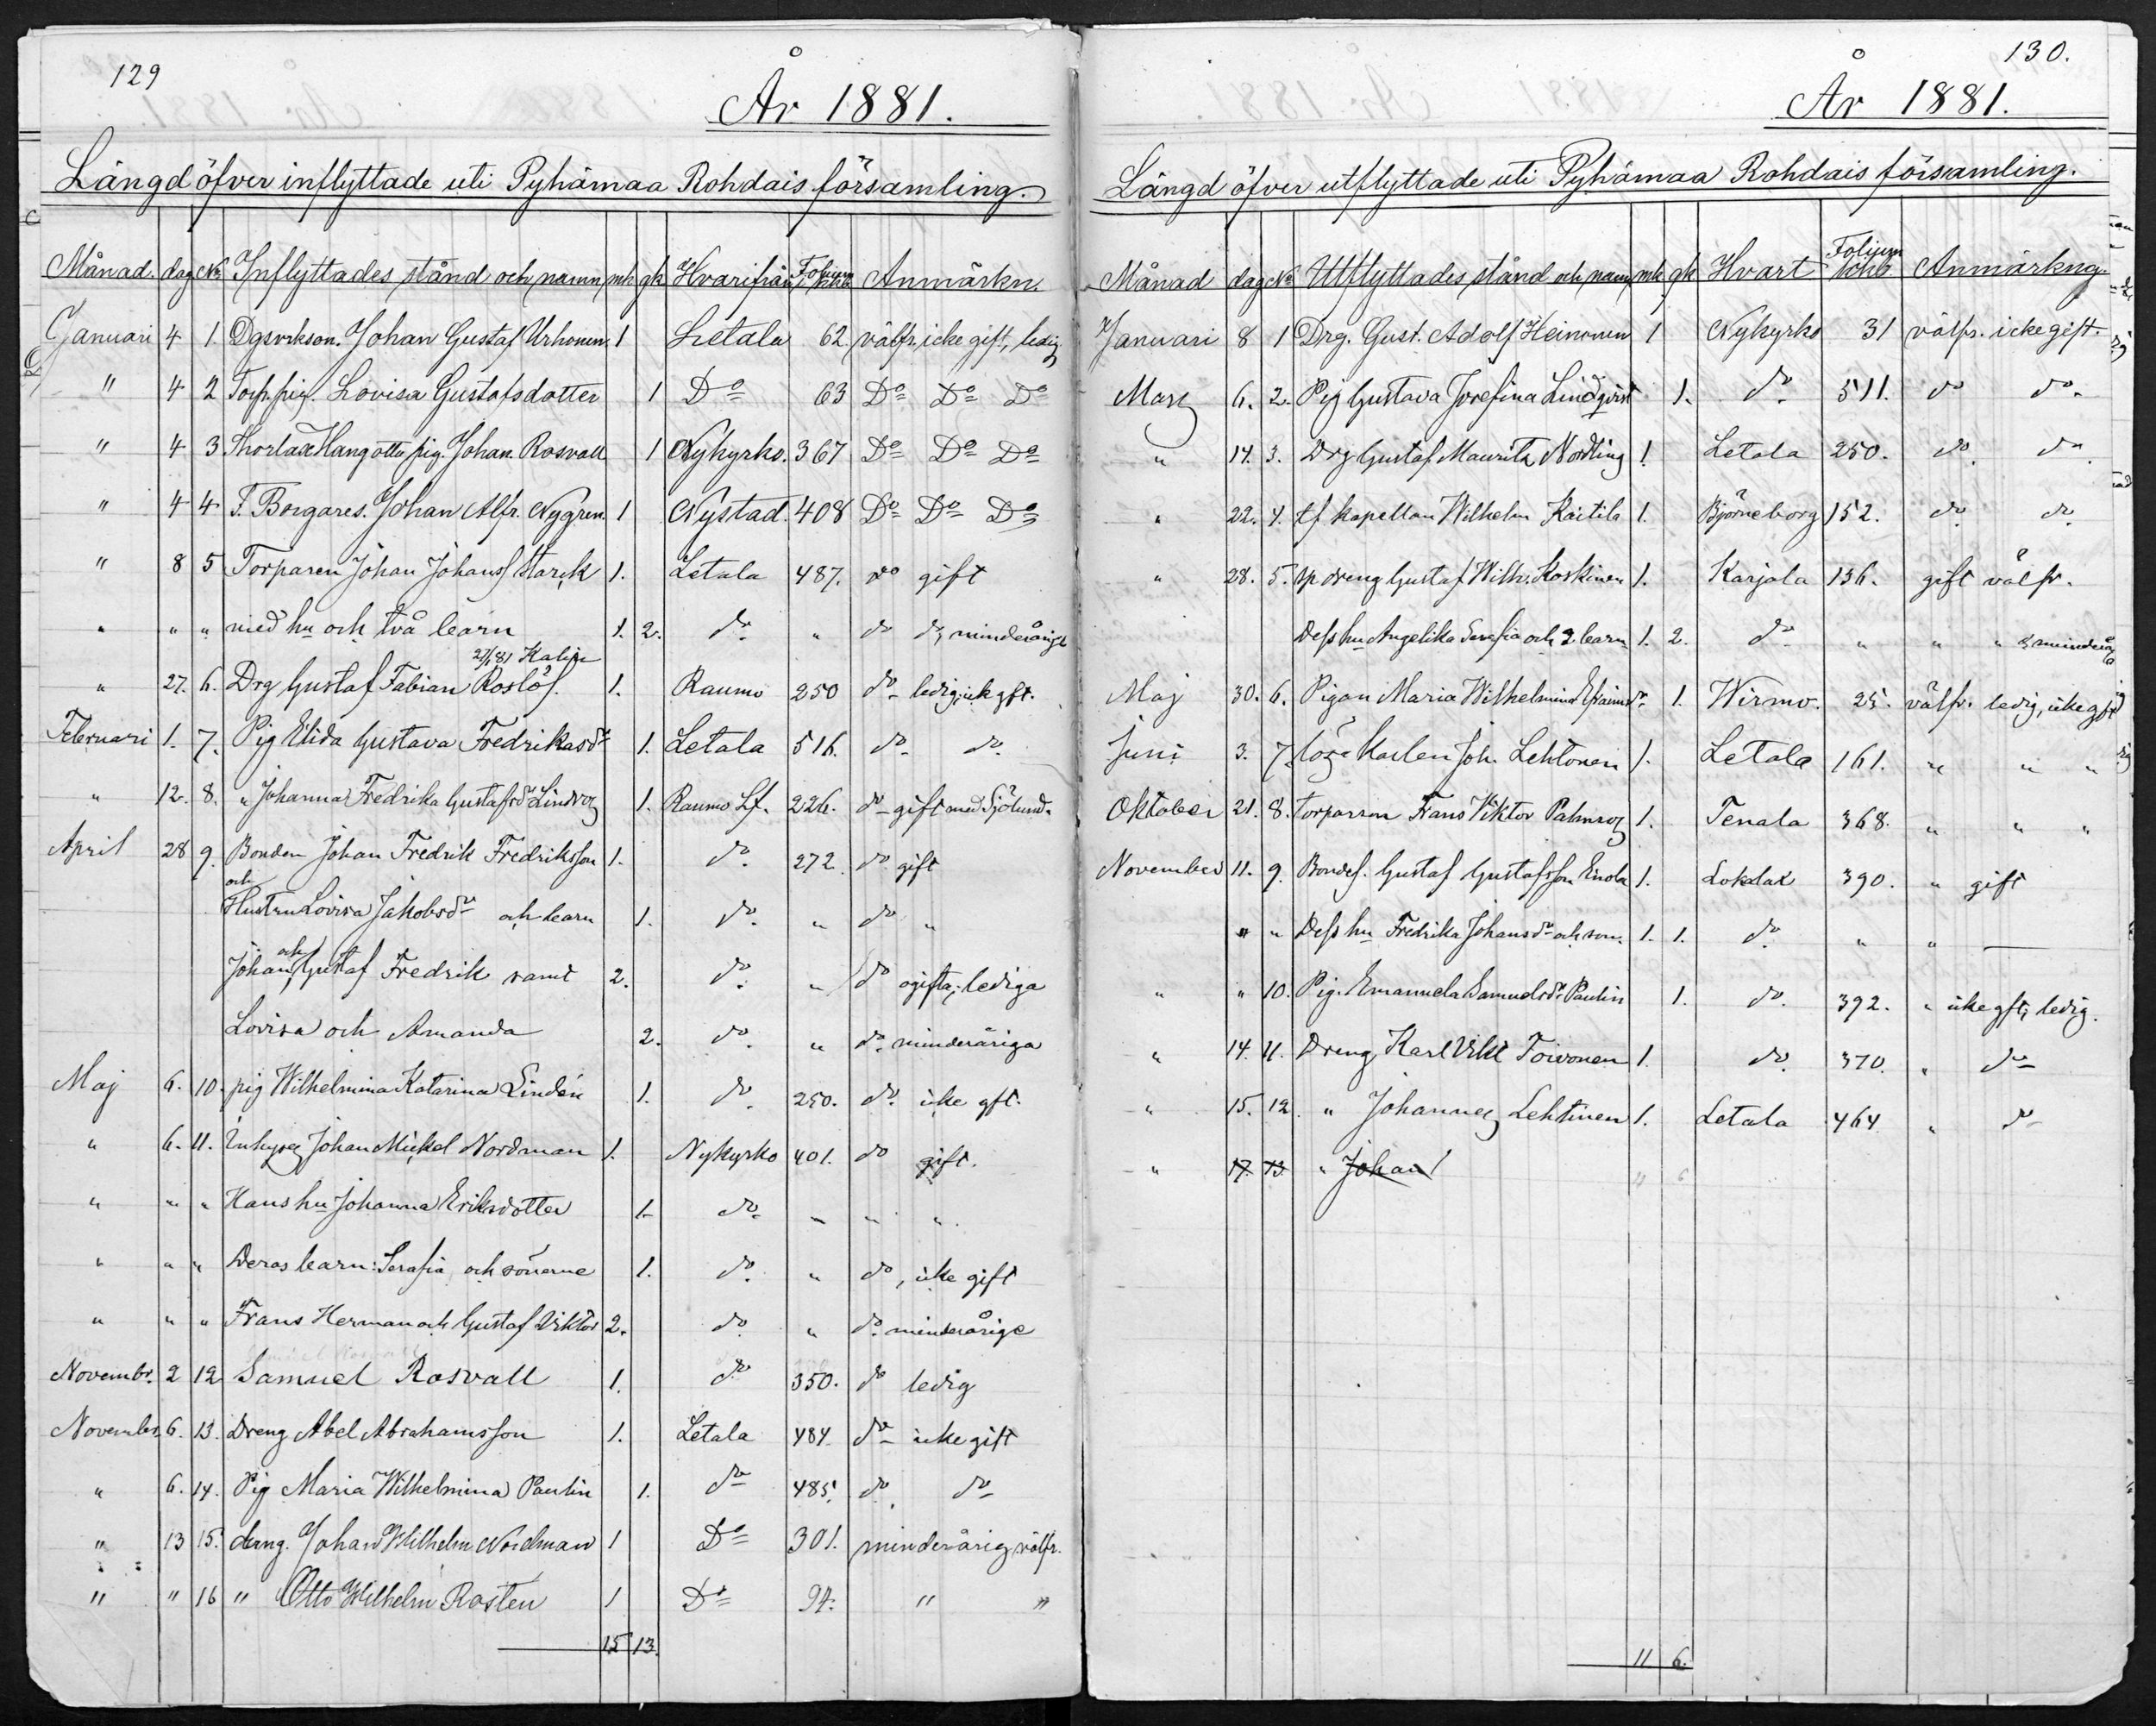 129
År 1881.
Längd öfver inflyttade uti Pyhämaa Rohdais församling.
Månad. dag No Inflyttades stånd och namn mk gk Hvarifrån Folium i kkb Anmärkn.
Januari 4 1. Johan Gustaf Urhonen. 1 Letala 62. välfr. icke gift, ledig
" 4 2 Torp. pig. Lovisa Gustafsdotter 1 Do 63 Do Do Do
" 4 3 pig. Johan. Rosvall 1 Nykyrko. 367 Do Do Do
" 4 4 F. Borgares. Johan Alfr. Nygren. 1 Nystad. 408 Do Do Do
" 8 5 Torparen Johan Johanss Starck 1. Letala 487. do gift
" " " med hu och två barn 1. 2. do " do do, minderåriga
27/1 81 Kalix
" 27. 6. Drg Gustaf Fabian Roslöf. 1. Raumo 250 do ledig, icke gft.
Februari 1. 7. Pig Elida Gustava Fredrikasdr 1. Letala 516. do do
" 12. 8. " Johanna Fredrika Gustafsdr 1. Raumo Lf. 226. do gift med Sjölund.
April 28 9. Bonden Johan Fredrik Fredriksson 1. do 272. do gift
och
Hustru Lovisa Jakobsdr och barn 1. do " do "
och
Johan, Gustaf Fredrik samt 2. do " do ogifta, lediga
Lovisa och Amanda 2. do " do minderåriga
Maj 6. 10. pig Wilhelmina Katarina Lindén 1. do 250. do icke gft.
" 6. 11. Inhyses Johan Mickel Nordman 1. Nykyrko 401. do gift.
" " " Hans hu Johanna Eriksdotter 1. do " " "
" " " Deras barn: Serafia och sönerne 1. do " do, icke gift
" " " Frans Herman och Gustaf Viktor 2. do " do minderårige
Novembr. 2 12 Samuel Rosvall 1. do 350. do ledig
November 6. 13. Dreng Abel Abrahamsson 1. Letala 484. do icke gift
" 6. 14. Pig Maria Wilhelmina Paulin 1. do 485. do do
" 13 15. dreng. Johan Wilhelm Nordman 1 Do 301. minderårig välfr.
" " 16 " Otto Wilhelm Rosten 1 Do 94. " "
15 13.
130.
År 1881.
Längd öfver utflyttade uti Pyhämaa Rohdais församling.
Månad dag No Utflyttades stånd och namn mk gk Hvart Folium i kkb Anmärkng.
Januari 8 1 Drg. Gust. Adolf Heinonen 1 Nykyrko 31 välfr. icke gift.
Mars 6. 2. Pig Gustava Josefina Lindqvist 1. do 511. do do
" 14. 3. Drg Gustaf Mauritz Nordling 1. Letala 250. do do
" 22. 4. tf Kapellan Wilhelm Kaitila 1. Björneborg 152. do do
" 28. 5. dreng Gustaf Wilh. Koskinen 1. Karjala 136. gift välfr.
Dess hu Angelika Serafia och 2 barn 1. 2. do " " "
Maj 30. 6. Pigan Maria Wilhelmina Efraimsdr 1. Wirmo. 25. välfr. ledig, icke gft
Juni 3. 7. Karlen Joh. Lehtonen 1. Letala 161. " " "
Oktober 21. 8. torparson Frans Viktor Palmroz 1. Tenala 368. " " "
November 11. 9. Bondes. Gustaf Gustafsson Enola 1. Lokalax 390. " gift
" " Dess hu Fredrika Johansdr och son. 1. 1. do " " —
" " 10. Pig. Emanuela Samuelsdr Paulin 1. do 392. " icke gft, ledig.
" 14. 11. Dreng Karl Vikt Toivonen 1. do 370. " do
" 15. 12. " Johannes Lehtinen 1. Letala 464 " do
" 17. 13. " Johan
11 6.